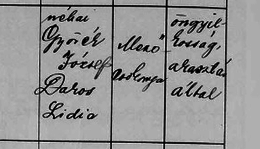 néhai
Győrék
József
Daros
Lidia
"Mező"
öngyil-
kosság,
akasztás
által